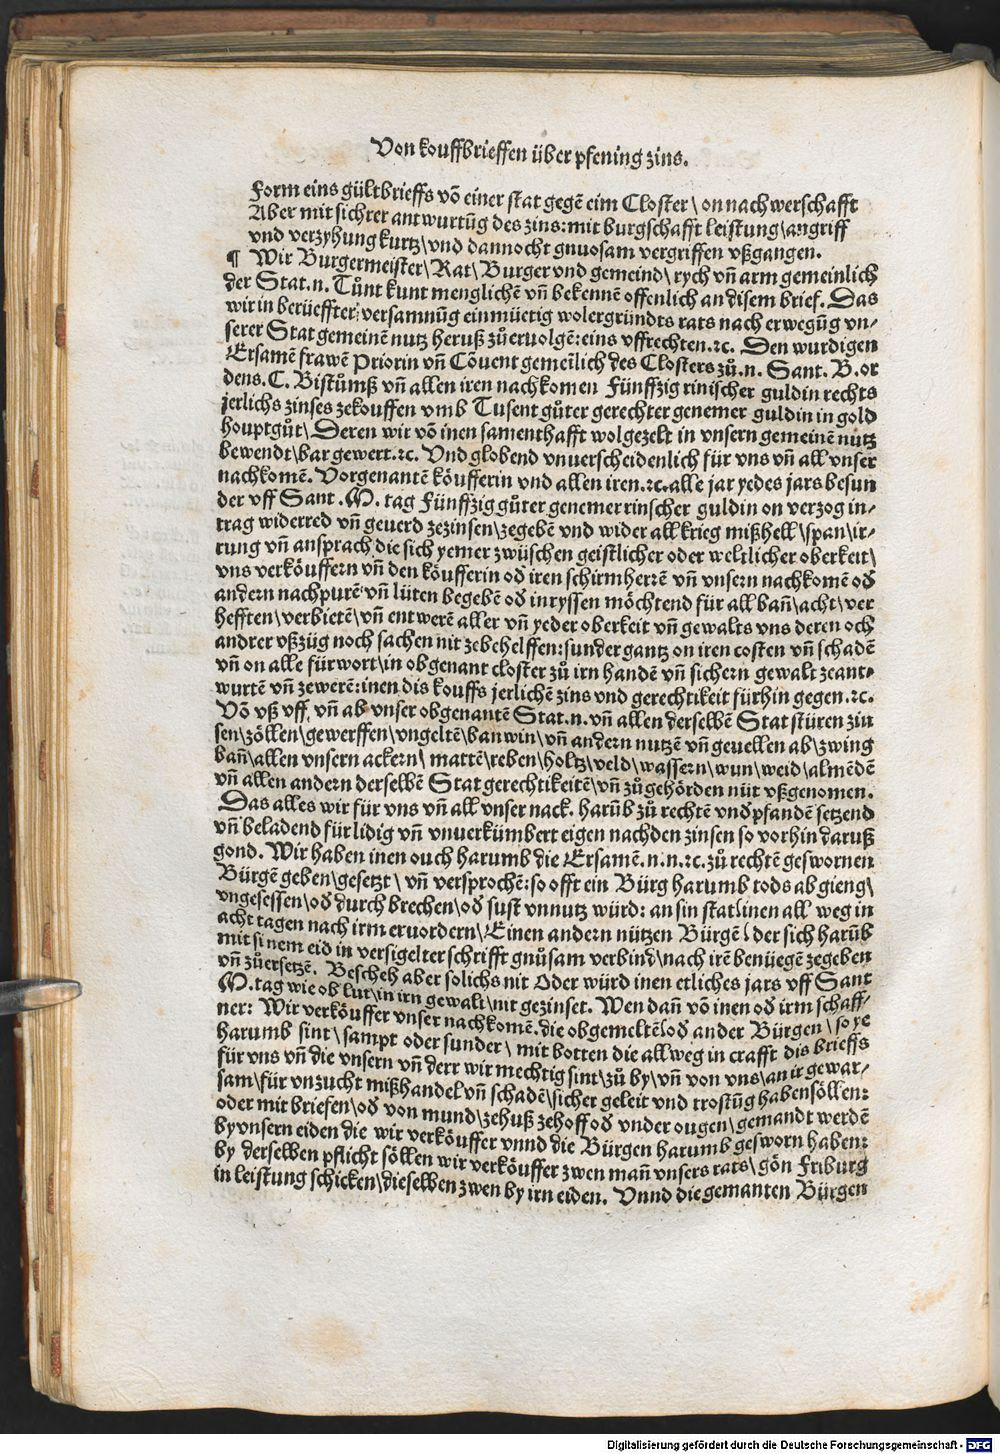 Von kouffbrieffen über pfening zins.
Form eins gültbrieffs võ einer stat gegẽ eim Closter \ on nachwerschafft
Aber mit sichrer antwurtũg des zins: mit burgschafft leistung \ angriff
vnd verzyhung kurtz \ vnd dannocht gnuosam vergriffen vßgangen.
¶ Wir Burgermeister \ Rat \ Burger vnd gemeind \ rych vñ arm gemeinlich
der Stat .n. Tůnt kunt menglichẽ vñ bekennẽ offenlich an disem brief. Das
wir in berüeffter versamnũg einmüetig wolergründts rats nach erwegũg vn-
serer Stat gemeinẽ nutz heruß zů eruolgẽ: eins vffrechten. ꝛc. Den wurdigen
Ersamẽ frawẽ Priorin vñ Cõuent gemeĩlich des Closters zů .n. Sant. B. or
dens. C. Bistůmß vñ allen iren nachkomen Fünffzig rinischer guldin rechts
jerlichs zinses zekouffen vmb Tusent gůter gerechter genemer guldin in gold
houptgůt \ Deren wir võ inen samenthafft wolgezelt in vnsern gemeinẽ nutz
bewendt \ bar gewert. ꝛc. Vnd globend vnuerscheidenlich für vns vñ all vnser
nachkomẽ. Vorgenantẽ köufferin vnd allen iren. ꝛc. alle jar yedes jars besun
der vff Sant .M. tag Fünffzig gůter genemer rinscher guldin on verzog in-
trag widerred vñ geuerd zezinsen \ zegebẽ vnd wider all krieg mißhell \ span \ ir-
rung vñ ansprach die sich yemer zwüschen geistlicher oder weltlicher oberkeit \
vns verköuffern vñ den köufferin oď iren schirmherrẽ vñ vnsern nachkomẽ oď
andern nachpurẽ vñ lüten begebẽ oď inryssen möchtend für all bañ \ acht \ ver
hefften \ verbietẽ \ vñ entwerẽ aller vñ yeder oberkeit vñ gewalts vns deren och
andrer vßzüg noch sachen nit zebehelffen: sunder gantz on iren costen vñ schadẽ
vñ on alle fürwort \ in obgenant closter zů irn handẽ vñ sichern gewalt zeant-
wurtẽ vñ zewerẽ: inen dis kouffs jerlichẽ zins vnd gerechtikeit fürhin gegen. ꝛc.
Võ vß vff vñ ab vnser obgenantẽ Stat .n. vñ allen derselbẽ Stat stüren zin
sen \ zöllen \ gewerffen \ vngeltẽ \ banwin \ vñ andern nutzẽ vñ geuellen ab \ zwing
bañ \ allen vnsern ackern \ mattẽ \ reben \ holtz \ veld \ wassern \ wun \ weid \ almẽdẽ
vñ allen andern derselbẽ Stat gerechtikeitẽ \ vñ zůgehörden nüt vßgenomen.
Das alles wir für vns vñ all vnser nack. harũb zů rechtẽ vnďpfandẽ setzend
vñ beladend für lidig vñ vnuerkümbert eigen nach den zinsen so vorhin daruß
gond. Wir haben inen ouch harumb die Ersamẽ .n.n. ꝛc. zů rechtẽ geswornen
Bürgẽ geben \ gesetzt \ vñ versprochẽ: so offt ein Bürg harumb tods ab gieng \
vngesessen \ oď durch brechen \ oď sust vnnutz würd: an sin stat \ inen all weg in
acht tagen nach irm eruordern \ Einen andern nützen Bürgẽ \ der sich harũb
mit sinem eid in versigelter schrifft gnůsam verbind \ nach irẽ benüegẽ zegeben
vñ zůersetzẽ. Bescheh aber solichs nit Oder würd inen etliches jars vff Sant
M. tag wie ob lut \ in irn gewalt \ nit gezinset. Wen dañ võ inen oď irm schaff-
ner: Wir verköuffer vnser nachkomẽ. die obgemeltẽ \ oď ander Bürgen \ so ye
harumb sint \ sampt oder sunder \ mit botten die allweg in crafft dis brieffs
für vns vñ die vnsern vñ derr wir mechtig sint \ zů by \ vñ von vns \ an ir gewar-
sam \ für vnzucht mißhandel vñ schadẽ \ sicher geleit vnd trostũg haben söllen:
oder mit briefen \ oď von mund \ zehuß zehoff oď vnder ougen \ gemandt werdẽ
by vnsern eiden die wir verköuffer vnnd die Bürgen harumb gesworn haben:
by derselben pflicht söllen wir verköuffer zwen mañ vnsers rats \ gön Friburg
in leistung schicken \ dieselben zwen by irn eiden. Vnnd die gemanten Bürgen
Digitalisierung gefördert durch die Deutsche Forschungsgemeinschaft - DFG